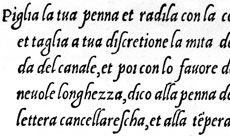 Piglia la tua penna et radila con la co
et taglia a tua discretione la mita de
da del canale, et poi con lo fauore d
neuole longhezza, dico alla penna d
lettera cancellarescha, et alla tẽpera